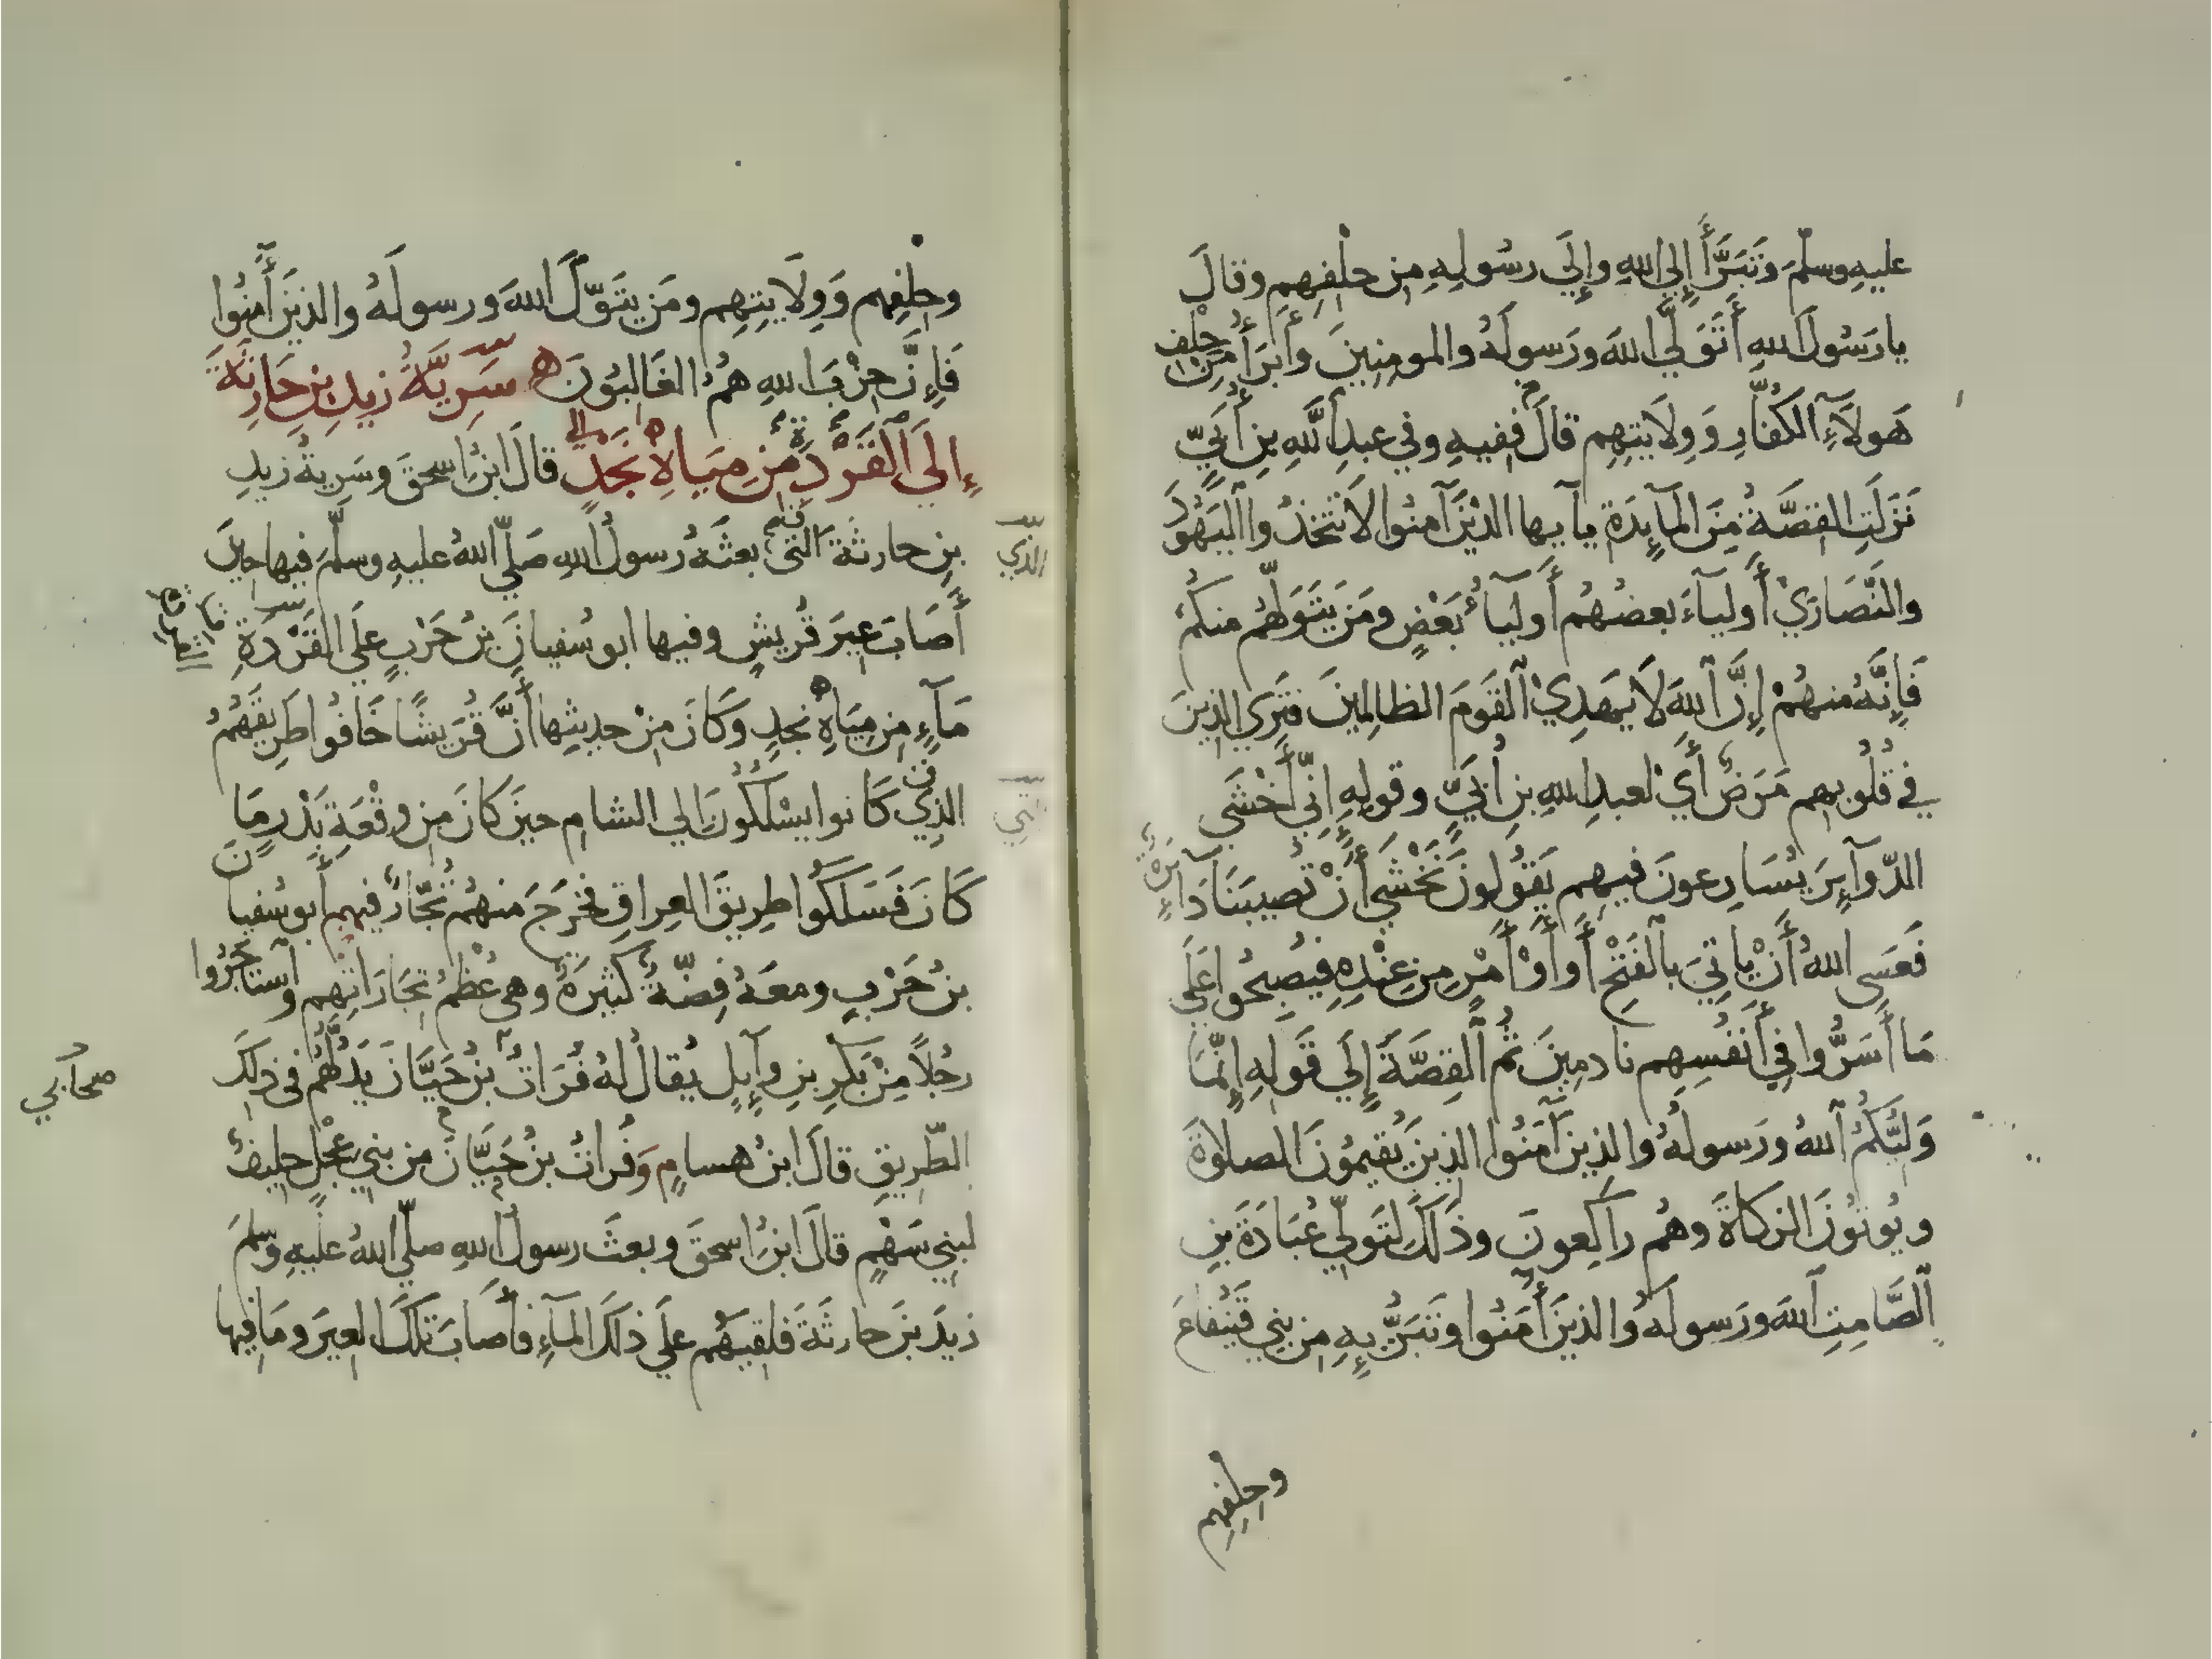 عليهِ وسلّمَ وَتَبَرَّأَ إِلَى اللهِ وإِلَى رسُولِهِ مِن حِلْفِهِم وقالَ
يا رَسُولَ اللهِ أَتَوَلَّى اللهَ ورَسولَهُ والمومِنِينَ وأَبرَأُ مِن حِلْفِ
هَولَآءِ الكُفّارِ وَوِلَايَتِهِم قالَ ففيهِ وفي عبدِ اللهِ بنِ أُبَيٍّ
نَزَلَتِ القصَّةُ مِنَ المآيِدَةِ يآ يها الذينَ آمنُوا لَا تتخذُوا اليَهُودَ
والنَّصَارَيْ أَوليآءَ بعضُهُم أَولِيآءُ بَعْضٍ ومَن يَتَوَلَّهُم منكُمْ
فَإِنَّهُ منهُمْ إِنَّ اللهَ لَا يَهدِيْ القَومَ الظالِمِينَ فتَرَى الذِينَ
في قُلُوبِهِم مَرَضٌ أَيْ لعبدِ اللهِ بنِ أُبَيٍّ وقولِهِ إِنِّي أَخْشَى
الدّوآيِرَ يُسَارِعونَ فيهِم يَقُولُونَ نَخْشَي أَنْ تُصيبَنَا دَآيِرَةٌ
فَعَسَى اللهُ أَنْ يأتِيَ بالفَتْحِ أَوْ أَمْرٍ مِن عِنْدِهِ فيُصبِحُوا عَلَي
مَا أَسَرُّوا فِي أَنفُسِهِم نادمِينَ ثُمَّ القِصَّةَ إِلَي قَولِهِ إِنَّمَا
وَلِيُّكُمُ اللهُ ورَسولُهُ والذِينَ آمَنُوا الذِينَ يُقِيمُونَ الصلاوةَ
ويُوتُونَ الزكاةَ وهُم راكِعونَ وذَلكَ لتَوَلِّي عُبَادَةَ بنِ
الصَّامِتِ اللهَ ورَسولَهُ والذينَ أَمَنُوا وتَبَرُّيِهِ مِن بني قَينُقاعَ
وحِلفِهِم
وحِلْفِهِم وَوِلَايتِهِم ومَن يتَوَلَّ اللهَ ورسولَهُ والذينَ أَمنُوا
فَإِنَّ حِزْبَ اللهِ هُمُ الغَالِبُونَ ه سَرِيَّةُ زيدِ بنِ حَارِثَةَ
إِلَي القَرْدَةِ مِن مِيَاهِ نَجدٍ قالَ ابنُ اسحقَ وسَرِيةُ زيدِ
بنِ حارثَةَ التي بعثَهُ رسولُ اللهِ صَلّي اللهُ عليهِ وسلّمَ فيها حِينَ
الذي
أَصَابَ عِيرَ قُريشٍ وفيها ابو سُفيانَ بنُ حَرْبٍ علَي القَرْدَةِ
مَآءٍ مِن مِيَاهِ نجدٍ وَكَانَ مِنْ حديثِها أَنَّ قُرَيشًا خَافُوا طَرِيقَهُمُ
الذِي كَانوا يسْلُكُونَ إلي الشام حينَ كانَ مِن وقْعَةِ بَدْرٍ مَا
التي
كَانَ فَسَلَكُوا طريقَ العِراقِ فخرَجَ منهُم تُجّارٌ فيهم أَبو سُفيانَ
بنُ حَرْبٍ ومعَهُ فِضّةٌ كثيرَةٌ وهي عُظْمُ تِجَارَاتِهِم وآستاجَرُوا
رجُلاً مِنْ بَكرِ بنِ وآيِلٍ يُقالُ لهُ فُرَاتُ بنُ حَيَّانَ يَدُلُّهُم في ذلكَ
صحآبي
الطّريقِ قالَ ابنُ هسامٍ وَفُراتُ بنُ حَيَّانَ مِن بني عِجْلٍ حليفٌ
لبني سَهْمٍ قالَ ابنُ اسحقَ وبعثَ رسولُ اللهِ صلّي اللهُ عليهِ وسلمَ
زيدَ بنَ حارثَةَ فلقيَهُم علَي ذلكَ المآءِ فأَصَابَ تلكَ العِيرَ ومَا فيها